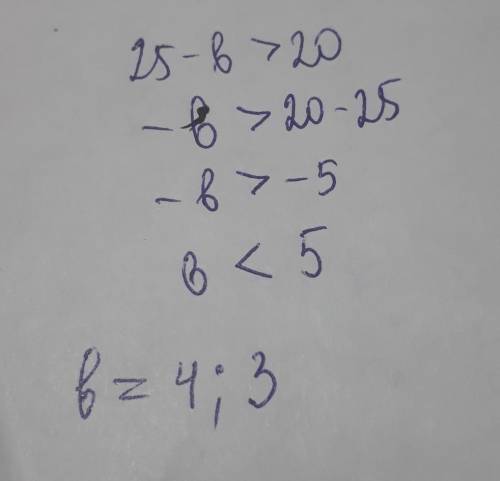 25 - b > 20
- b > 20 - 25
- b > - 5
b < 5
b = 4; 3